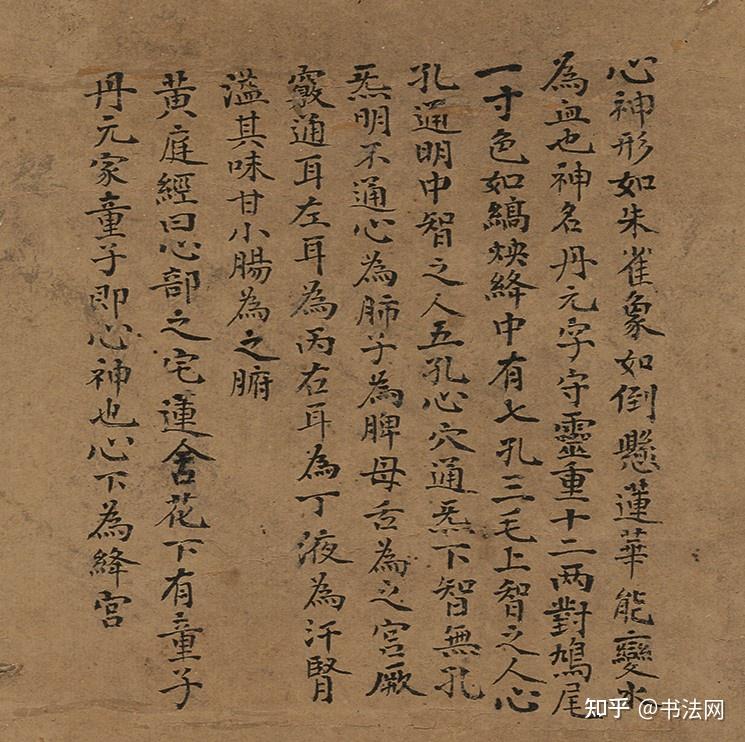 心神形如朱雀象如倒懸蓮華能變水
為血也神名丹元字守靈重十二两對鳩尾
一寸色如縞焕絳中有七孔三毛上智之人心
孔通明中智之人五孔心穴通炁下智無孔
炁明不通心為肺子為脾母舌為之宫厥
竅通耳左耳為丙右耳為丁液為汗腎
溢其味甘小腸為之腑
黄庭經曰心部之宅蓮含花下有童子
丹元家童子即心神也心下為絳宫
知乎 @书法网